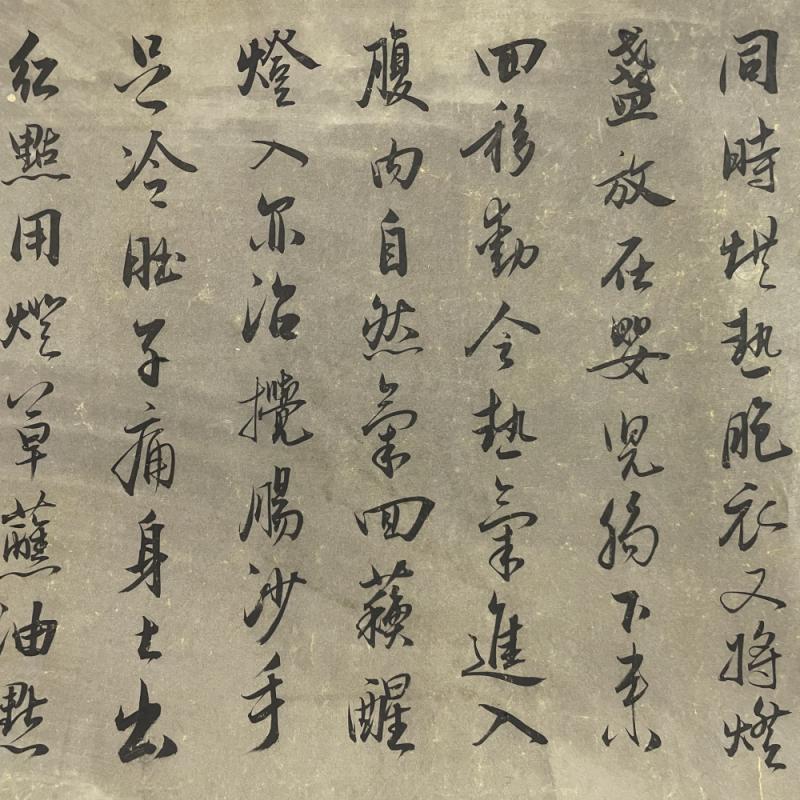 同時烘熱胞衣又將燈
盞放在嬰兒腸下来
回移動令熱氣進入
腹內自然氣回蘓醒
燈入亦治攪腸沙手
足冷肚子痛身上出
紅點用燈草蘸油點